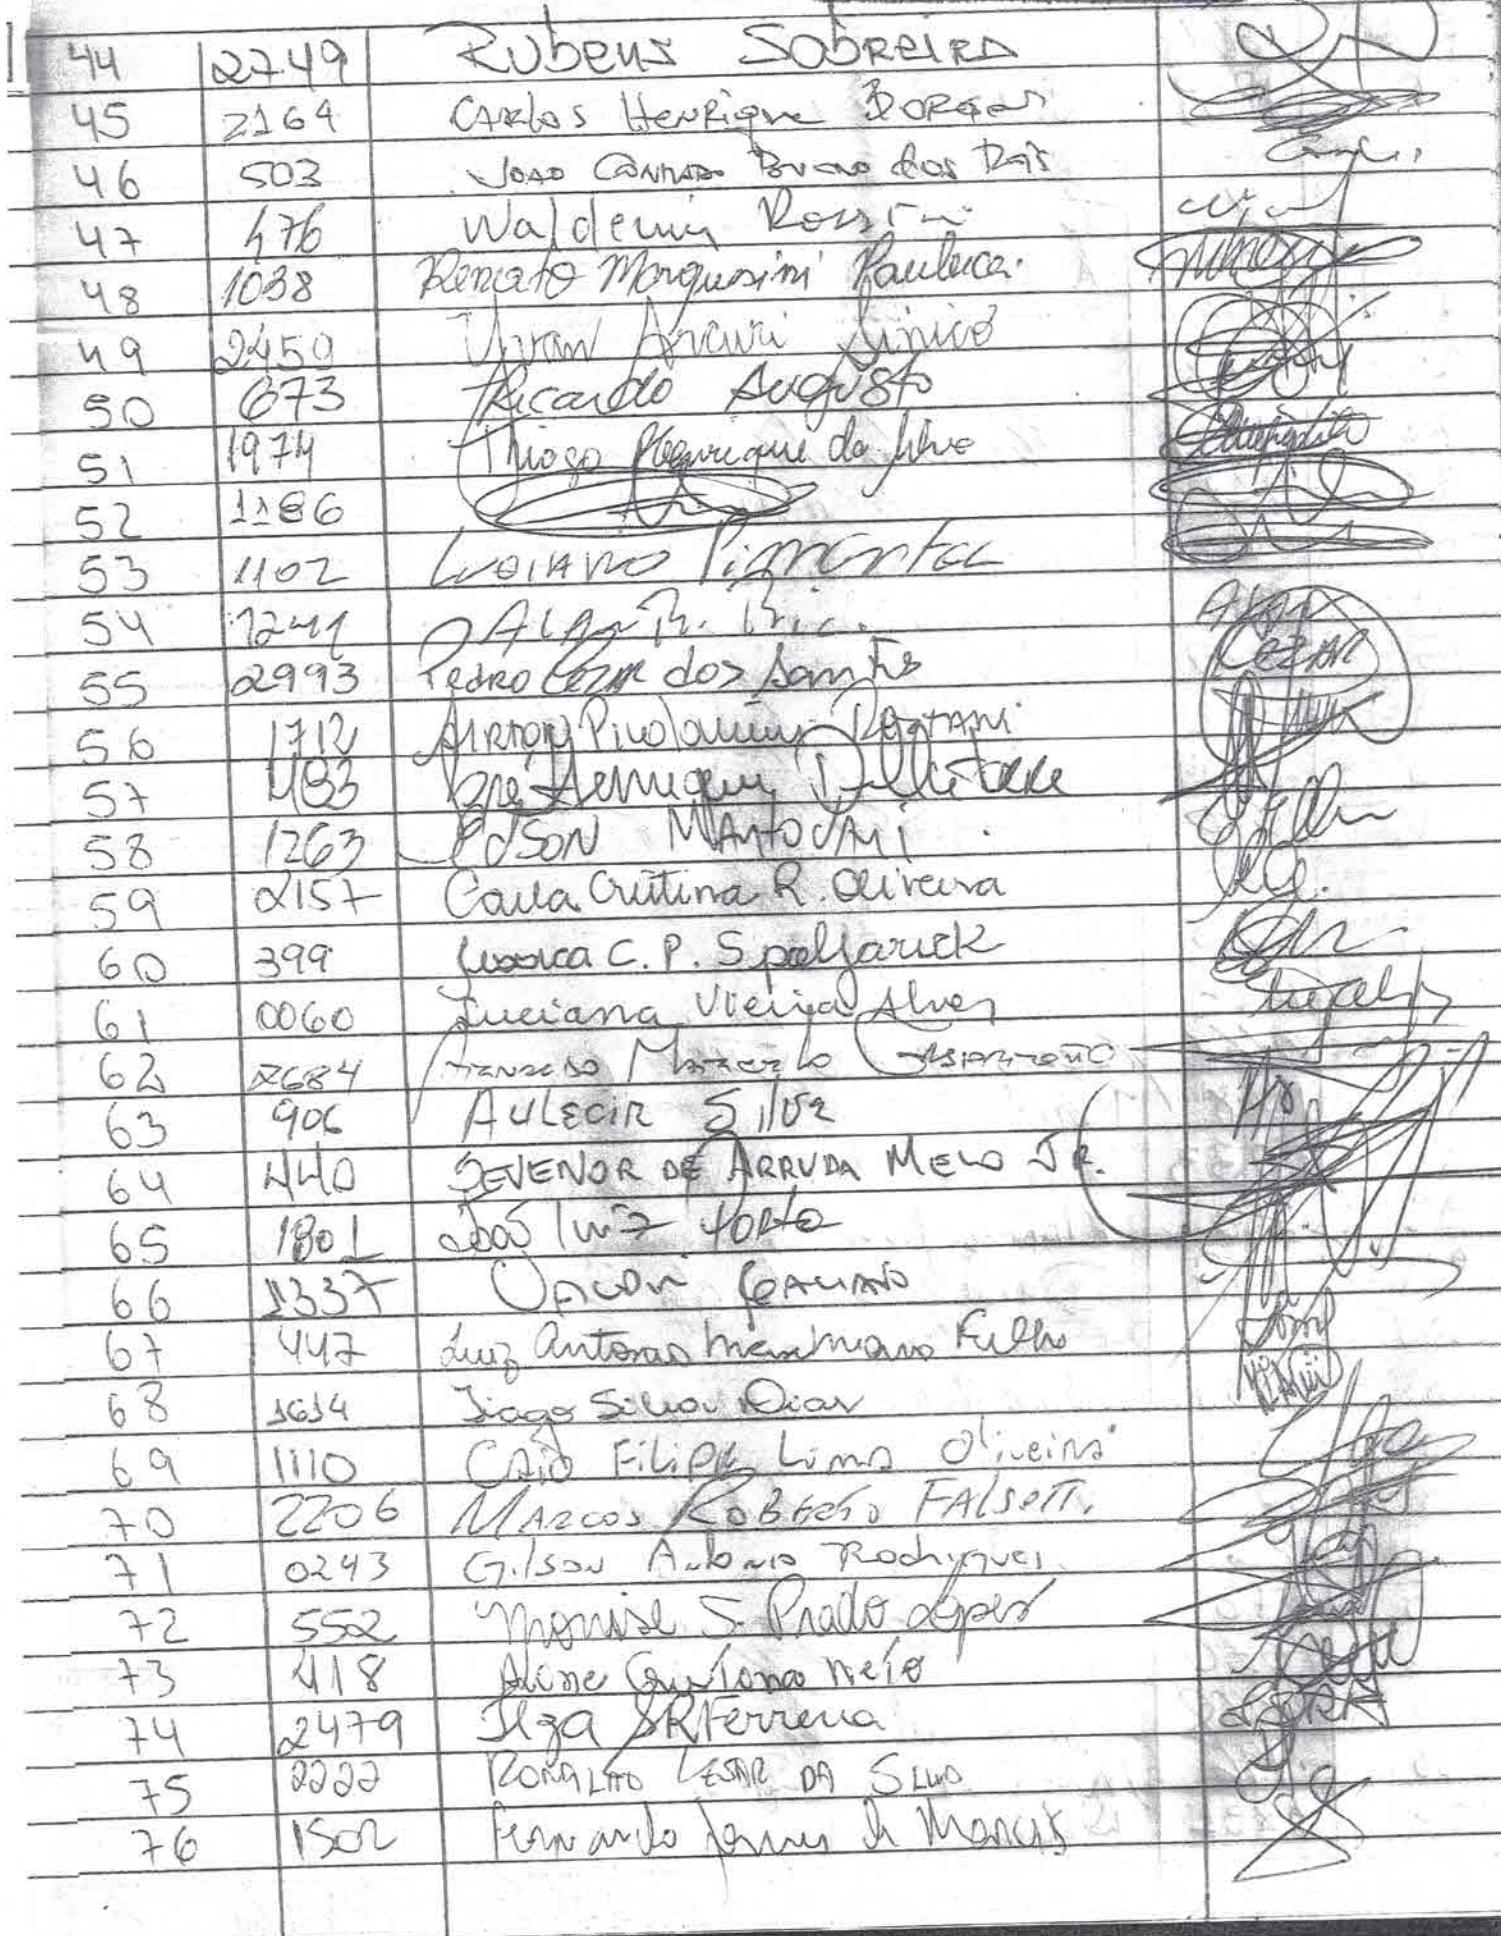 44 2749 Rubens Sobreira
45 2164 Carlos Henrique Borges
46 503 João Bueno dos Reis
47 476 Waldemir
48 1038 Renato
49 2450 Sinico
50 673 Ricardo Augusto
51 1974 Thiago Henrique da Silva
52 1186
53 1102 Luciano Pimentel
54 1241 Alan R.
55 2993 Pedro Cezar dos Santos Cezar
56 1712 Airton
57 483 José Henrique
58 1263 Edson Mantovani
59 2157 Carla Cristina R. Oliveira
60 399 Jessica C. P. Spoljarick
61 0060 Luciana Vieira Alves
62 2684
63 906 Aulecir Silva
64 440 Sevenor de Arruda Melo Jr.
65 1801 João Luiz Porto
66 1337
67 447 Luiz Antonio Filho
68 1614 Tiago Silva Dias
69 1110 Caio Filipe Lima Oliveira
70 2206 Marcos Roberto Falsetti
71 0243 Gilson Antonio Rodrigues
72 552 Monise S. Prado Lopes
73 418 Neto
74 2479 Ilza SR Ferreira
75 2222 Ronaldo Cesar da Silva
76 1502 Fernando